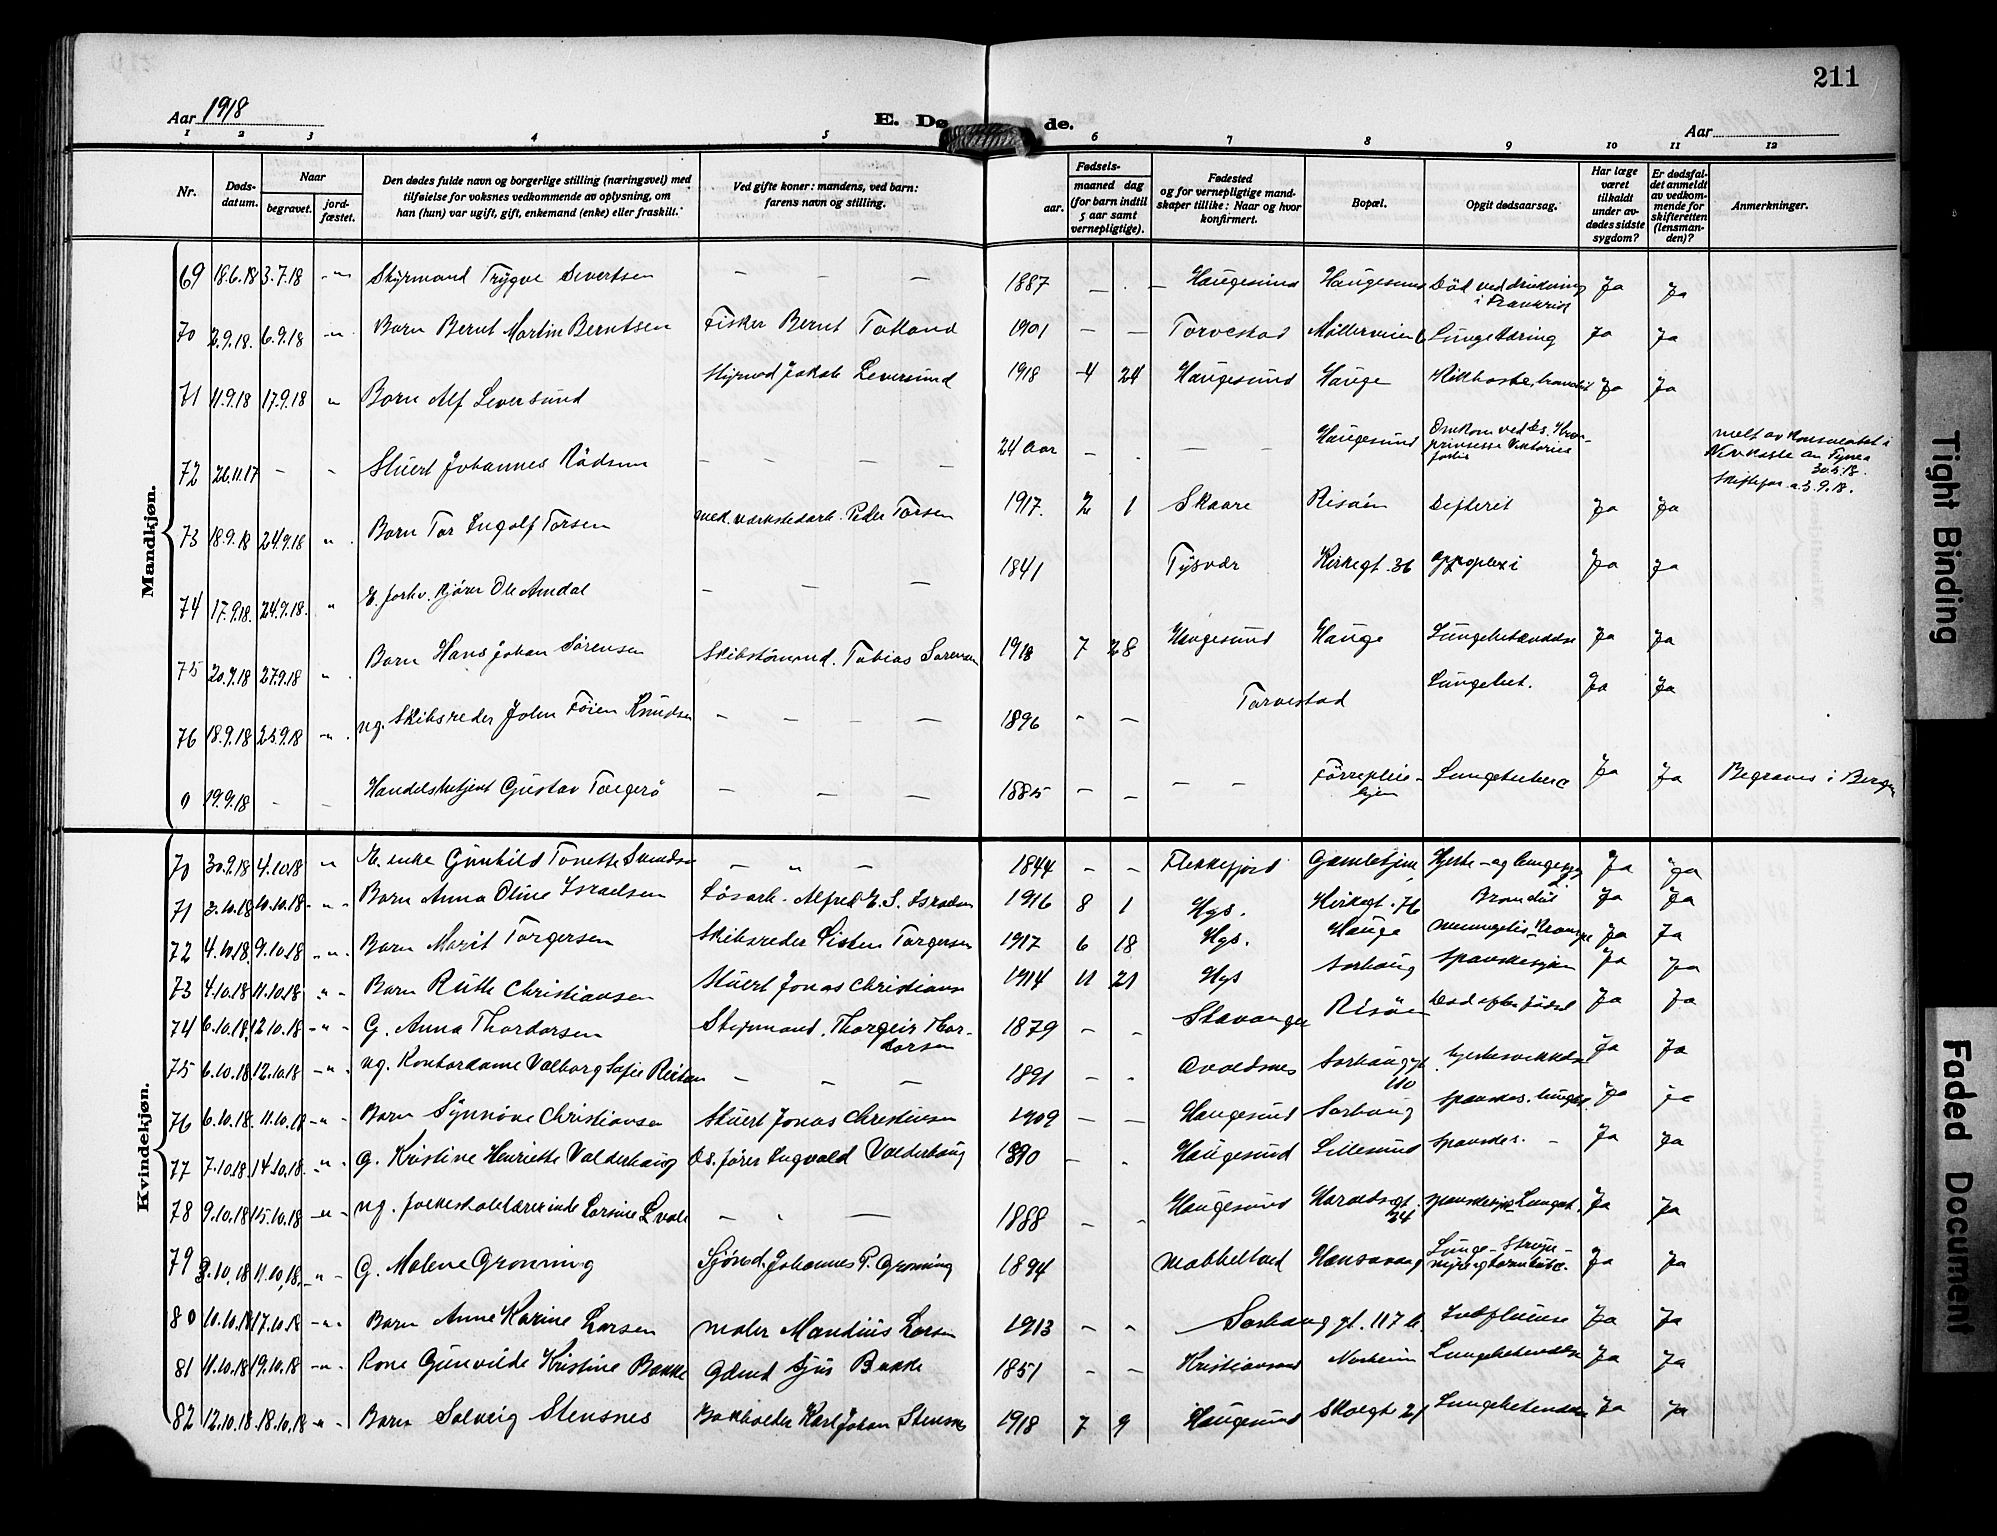 211
Aar 1918
E. Dø de.
Aar
1 2 3 4 5 6 7 8 9 10 11 12
Nr.
Døds-
datum.
Naar
begravet.
jord-
fæstet.
Den dødes fulde navn og borgerlige stilling (næringsvei) med
tilføielse for voksnes vedkommende av oplysning, om
han (hun) var ugift, gift, enkemand (enke) eller fraskilt.
Ved gifte koner: mandens, ved barn:
farens navn og stilling.
Fødsels-
aar.
maaned dag
(for barn indtil
5 aar samt
vernepligtige).
Fødested
og for vernepligtige mand-
skaper tillike: Naar og hvor
konfirmert.
Bopæl.
Opgit dødsaarsag.
Har læge
været
tilkaldt
under av-
dødes sidste
sygdom?
Er dødsfal-
det anmeldt
av vedkom-
mende for
skifteretten
(lensman-
den)?
Anmerkninger.
Mandkjøn.
69 18.6.18 3.7.18 -"- Styrmand Trygve Sivertsen — — — 1887 — . — Haugesund Haugesund Død ved drukning Ja Ja
i Frankrik
70 2.9.18. 6.9.18 -"- Barn Bernt Martin Berntsen Fisker Bernt Tatland 1901 — — Torvestad Møllerveien 6 Lungetæring Ja Ja
71 11.9.18 17.9.18 " Barn Alf Leversund Styrmd Jakob Leversund 1918 4 24 Haugesund Hauge Kikhoste, Ja Ja
72 26.11.17 - " Stuert Johannes Rådsun — — — 24 Aar - . — — Haugesund Omkom ved ds. Kron-
prinsesse Viktorias
forlis
melt av Konsulatet i
Newkastle on Tyne
30.5.18.
Skiftefor. 23.9.18.
73 18.9.18 24.9.18 " Barn Tor Ingolf Torsen mek. værkstedarb. Peder Torsen 1917. 2 1 Skaare Risøen Difterit Ja Ja
74 17.9.18. 24.9.18. " E. forhv. Kjører Ole Amdal — — — 1841 Tysvær Kirkegt. 36 appoplexi Ja Ja
75 20.9.18 27.9.18 " Barn Hans Johan Sørensen Skibstømmd. Tobias Sørensen 1918 7 28 Haugesund Hauge Lungebetændelse Ja Ja
76 18.9.18 25.9.18 -"- ug. Skibsreder John Føien Knudsen — — — — 1896 - — Torvestad Lungebet. Ja Ja
0 19.9.18 - - Handelsbetjent Gustav Torgerø — — — 1885 - - — — Førrepleie-
hjem Lungetuberc Ja Ja Begraves i Bergen
Kvindekjøn.
70 30.9.18 4.10.18 " E. enke Gunhild Tonette Svendsen — " — 1844 - - Flekkefjord Gamlehjem Hjerte- og lungesyg Ja Ja
71 3.10.18 10.10.18 -"- Barn Anna Oline Israelsen Løsarb. Alfred E. S. Israelsen 1916 8 1 Hgs. Kirkegt. 76 Ja Ja
72 4.10.18. 9.10.18 -"- Barn Marit Torgersen Skibsreder Sisten Torgersen 1917 6 18 Hgs. Hauge meningitis Krampe Ja Ja
73 4.10.18 11.10.18 "- Barn Ruth Christiansen Stuert Jonas Christiansen 1914 11 21 Hgs Sørhaug Spanskesyken Ja Ja
74 6.10.18. 12.10.18 -"- G. Anna Thordarsen Styrmand. Thorgeir Thor-
darsen 1879 - - Stavanger Risøen Død efter fødsel Ja Ja
75 6.10.18 12.10.18 -"- ug. Kontordame Valborg Sofie — — — 1891 - - Avaldsnes Sørhauggt
110 Ja Ja
76 6.10.18. 11.10.18 -"- Barn Synnøve Christiansen Stuert Jonas Christiansen 1909 - - Haugesund Sørhaug spanskes. lungebet. Ja Ja
77 7.10.18. 14.10.18. "- G. Kristine Henriette Valderhaug Ds. fører Ingvald Valderhaug 1890 - . Haugesund Lillesund spanskes. - Ja Ja
78 9.10.18 15.10.18 -"- ug. folkeskolelærerinde Larsine — - — 1888 - - Haugesund Haraldsgt.
34 Ja Ja
79 9.10.18 11.10.18. -"- G. Malene Grønning Sjømd. Johannes P. Grønning 1894 - - Hansavaag Lunge- Strupe- Ja Ja
80 10.10.18 17.10.18 -"- Barn Anne Karine Larsen maler Mandius Larsen 1913 - - Sørhauggt. 117 b. Influensa Ja Ja
81 11.10.18 19.10.18 -"- Kone Gunvilde Kristine Bakke Gdmd Sjur Bakke 1851 - - Kristiansand Norheim Lungebetændelse Ja Ja
82 12.10.18. 18.10.18 " - Barn Solveig Stensnes Bokholder Karl Johan Stensnes 1918 7 9 Haugesund Skolegt 21 Lungebetændelse Ja Ja
Tight Binding
Faded Document